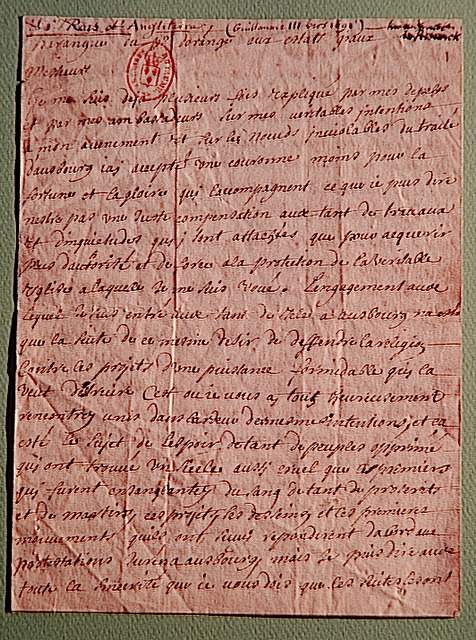 Roys d'Angleterre (Guillaume III vers 1690)
Harangue du d'orange aux estats
Messieurs
Je me suis deja plusieurs fois explique par mes depesches
et par mes ambassadeurs sur mes veritables intentions
a mon avenement et sur les Noeuds inviolables du traité
D'ausbourg iay accepté une couronne moins pour la
fortune et la gloire qui l'accompagnent ce que ie puis dire
nestre pas une Juste compensation aux tant de travaux
et D'inquietudes qui y sont attachées que pour acquerir
plus d'autorité et de force a la protection de la veritable
Eglise a laquelle Je me suis voué. L'engagement avec
lequel Je suis entré avec tant de zele a ausbourg na esté
que la suite de ce mesme desir de deffendre la religion
Contre les projets d'une puissance formidable qui la
veut détruire C'est où ie vous ay tous heureusement
rencontrez unis dans les mesmes intentions, et ca
esté le sujet de l'espoir de tant de peuples opprimé
qui ont trouué un siecle aussi cruel que les premiers
qui furent ensanglantez du sang de tant de proscrits
et de martirs, ces projets les desseins et les premiers
mouuements quils ont suivis repondirent d'abord aux
protestations Jurez a ausbourg, mais Je puis dire avec
toute la sincerité que ie vous dois que les suites sont